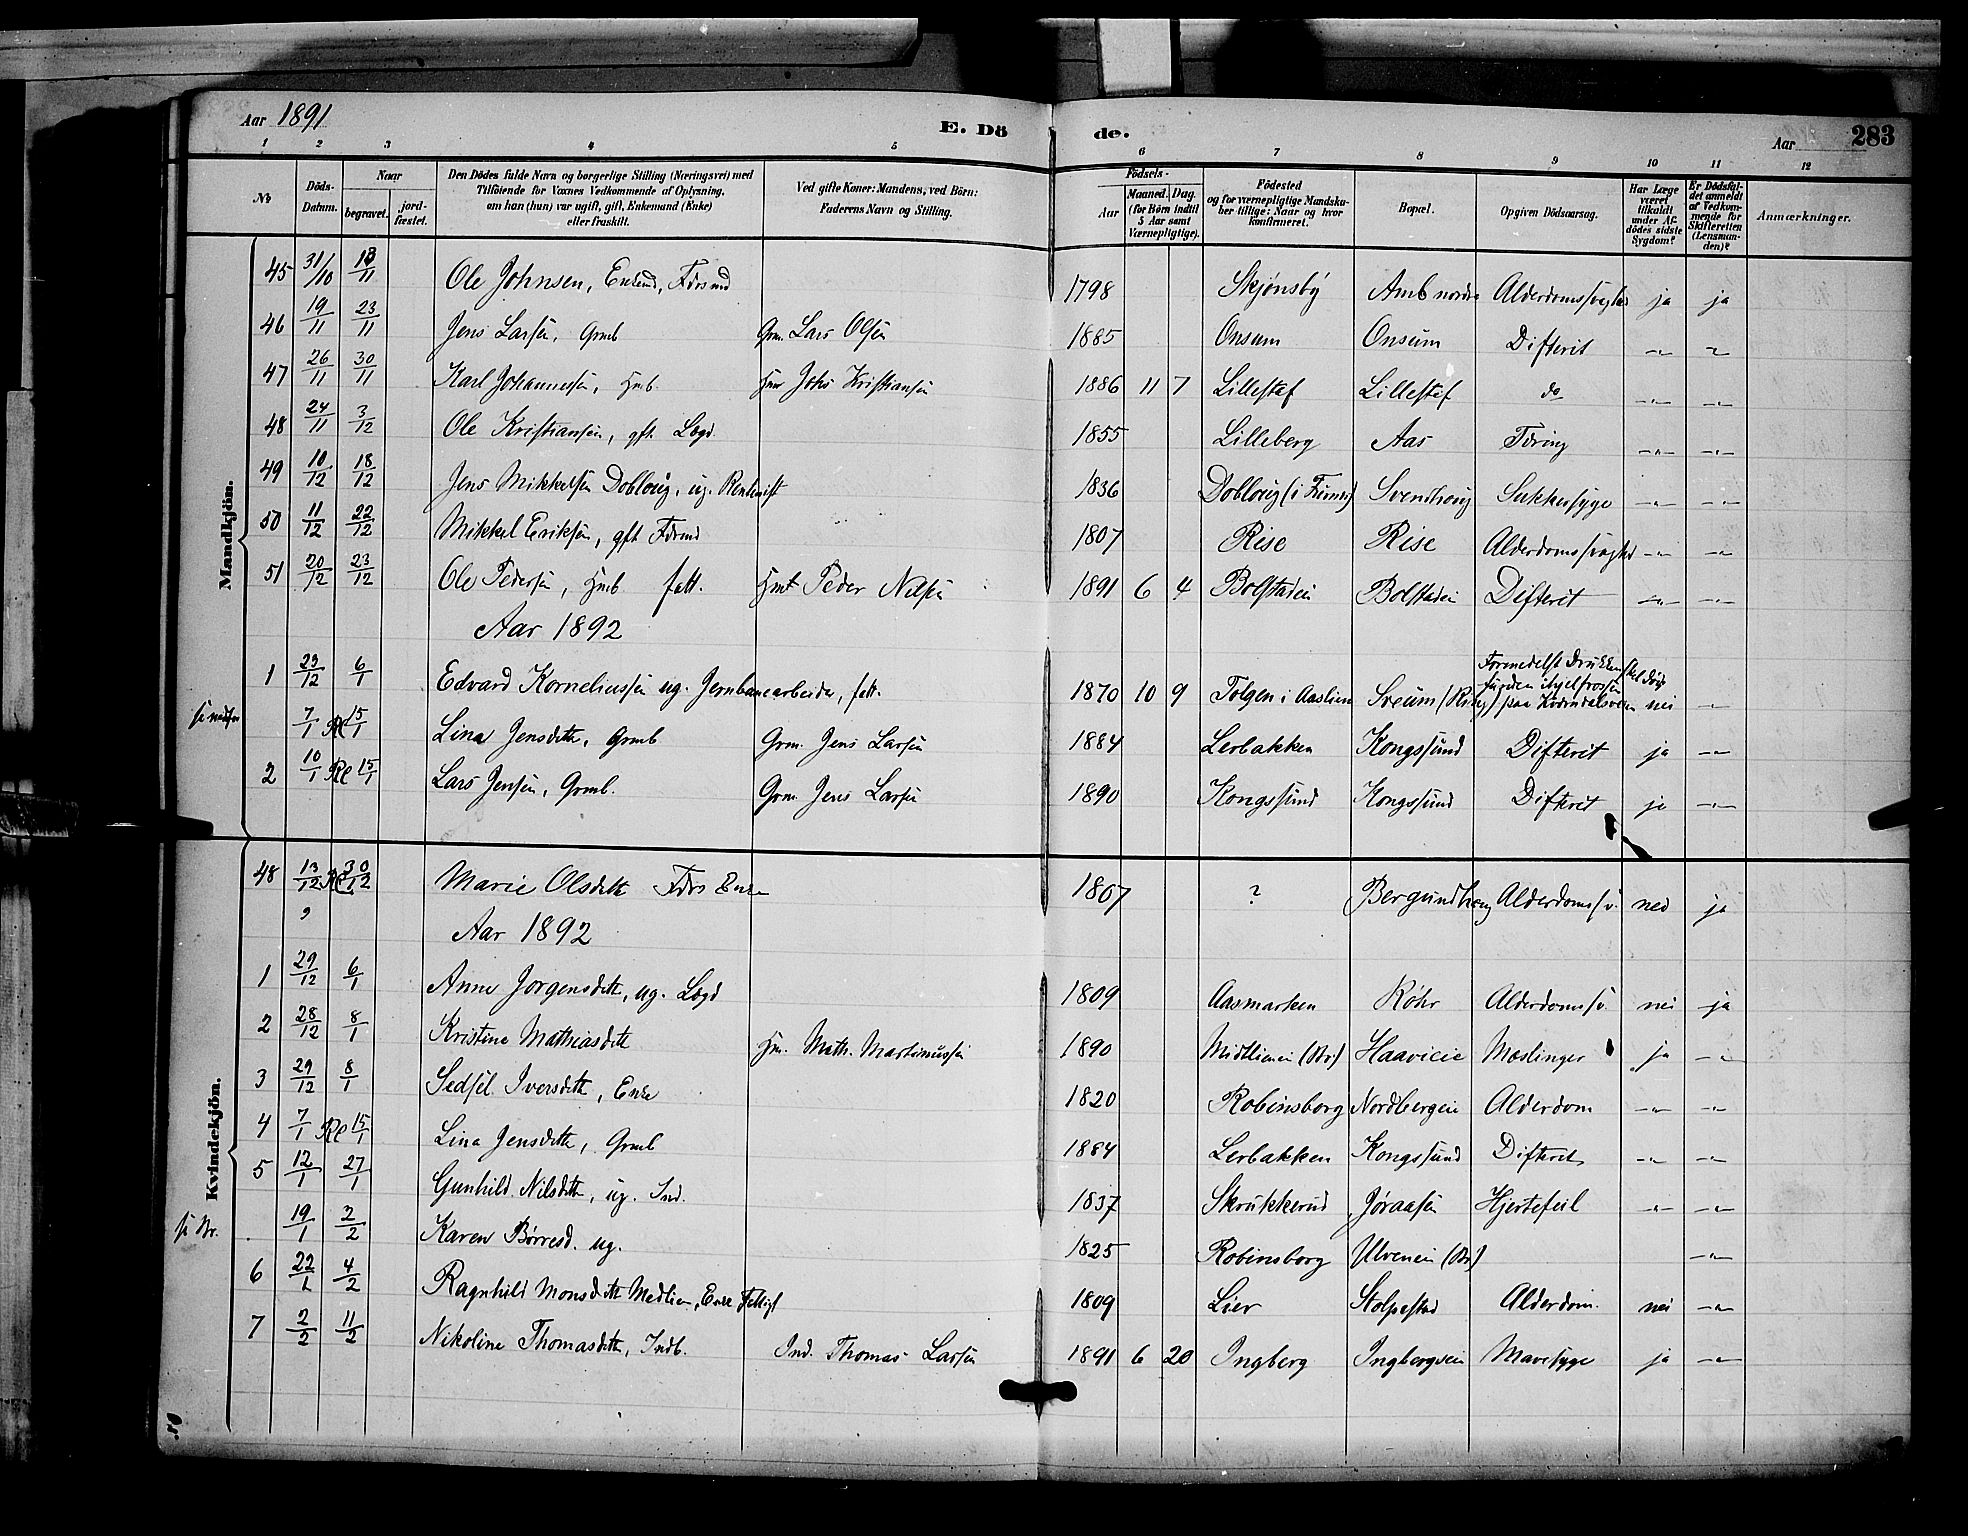 Aar 1891
E. Dö
de.
Aar
283
1 2 3 4 5 6 7 8 9 10 11 12
No
Döds-Datum.
Naar
begravet.
jord-fæstet.
Den Dödes fulde Navn og borgerlige Stilling (Næringsvei) med
Tilföiende for Voxnes Vedkommende af Oplysning,
om han (hun) var ugift, gift, Enkemand (Enke)
eller fraskilt.
Ved gifte Koner: Mandens, ved Börn:
Faderens Navn og Stilling.
Födsels-
Aar
Maaned.
Dag.
(for Börn indtil
5 Aar samt
Værnepligtige).
Födested
og for værnepligtige Mandska-
ber tillige: Naar og hvor
konfirmeret.
Bopæl.
Opgiven Dödsaarsag.
Har Læge
været
tilkaldt
under Af-
dödes sidste
Sygdom?
Er Dödsfal-
det anmeldt
af Vedkom-
mende for
Skifteretten
(Lensman-
den)?
Anmærkninger.
Mandkjön.
45 31/10 13/11 Ole Johnsen, Enkmd, Fdrsmd 1798 Skjønsby Amb nordre Alderdomssvaghed ja ja
46 19/11 23/11 Jens Larsen, Grmb Grm. Lars Olsen 1885 Onsum Onsum Difterit -"- -"-
47 26/11 30/11 Karl Johannessen, Hmb. Hmr Johs Kristiansen 1886 11 7 Lillestef Lillestef do -"- -"-
48 24/11 3/12 Ole Kristiansen, gft. Lægd. 1855 Lilleberg Aas Tæring -"- -"-
49 10/12 18/12 Jens Mikkelsen Dobloug, ug. Rentenist 1836 Dobloug (i Furnes) Svendhoug Sukkersyge -"- -"-
50 11/12 22/12 Mikkel Eriksen, gft Fdrmd 1807 Rise Rise Alderdomssvaghed -"- -"-
51 20/12 23/12 Ole Pedersen, Hmb fatt. Hmt Peder Nilsen 1891 6 4 Bolstadeie Bolstadeie Difterit -"- -"-
Aar 1892
1 23/12 6/1 Edvard Korneliussen ug. Jernbanearbeider, fatt. 1870 10 9 Tolgen i Aaslien Sveum (Ring) nei -"-
7/1 15/1 Lina Jensdtr, Grmb Grm. Jens Larsen 1884 Lerbakken Kongssund Difterit ja -"-
2 10/1 15/1 Lars Jensen, Grmb. Grm. Jens Larsen 1890 Kongssund Kongssund Difterit ja -"-
Kvindekjön.
48 13/12 30/12 Marie Olsdtr Fdrs Enke 1807 ? Bergundhaug Alderdomssv. nei ja
Aar 1892
1 29/12 6/1 Anne Jørgensdtr, ug. Lægd 1809 Aasmarken Røhr Alderdomssv. nei ja
2 28/12 8/1 Kristine Mathiasdtr Hm. Math. Martinussen 1890 Haavieie Mæslinger ja -"-
3 29/12 8/1 Sedsel Iversdtr, Enke 1820 Robinsborg Nordbergeie Alderdom -"- -"-
4 7/1 15/1 Lina Jensdtr, Grmb 1884 Lerbakken Kongssund Difterit -"- -"-
5 12/1 27/1 Gunhild Nilsdtr, ug. Ind. 1837 Skrukkerud Jøraasen Hjertefeil -"- -"-
19/1 2/2 Karen Børresd. ug. 1825 Robinsborg Ulveneie -"-
6 22/1 4/2 Ragnhild Monsdtr Medlien, Enke 1809 Lier Stolpestad Alderdom. nei -"-
7 2/2 11/2 Nikoline Thomasdtr, Indb. Ind. Thomas Larsen 1891 6 20 Ingberg Ingbergseie Mavesyge ja -"-